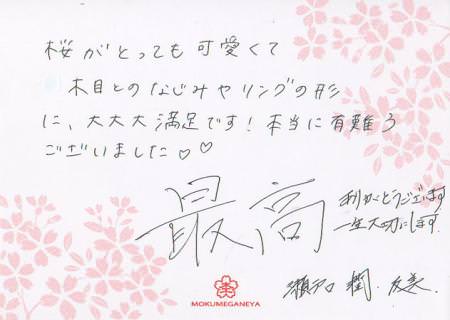 桜がとっても可愛くて
木目とのなじみやリングの形
に、大大大満足です！本当に有難う
ございました♡♡
最高
ありがとうございます
一生大切にします。
瀬戸口 潤・友美
MOKUMEGANEYA